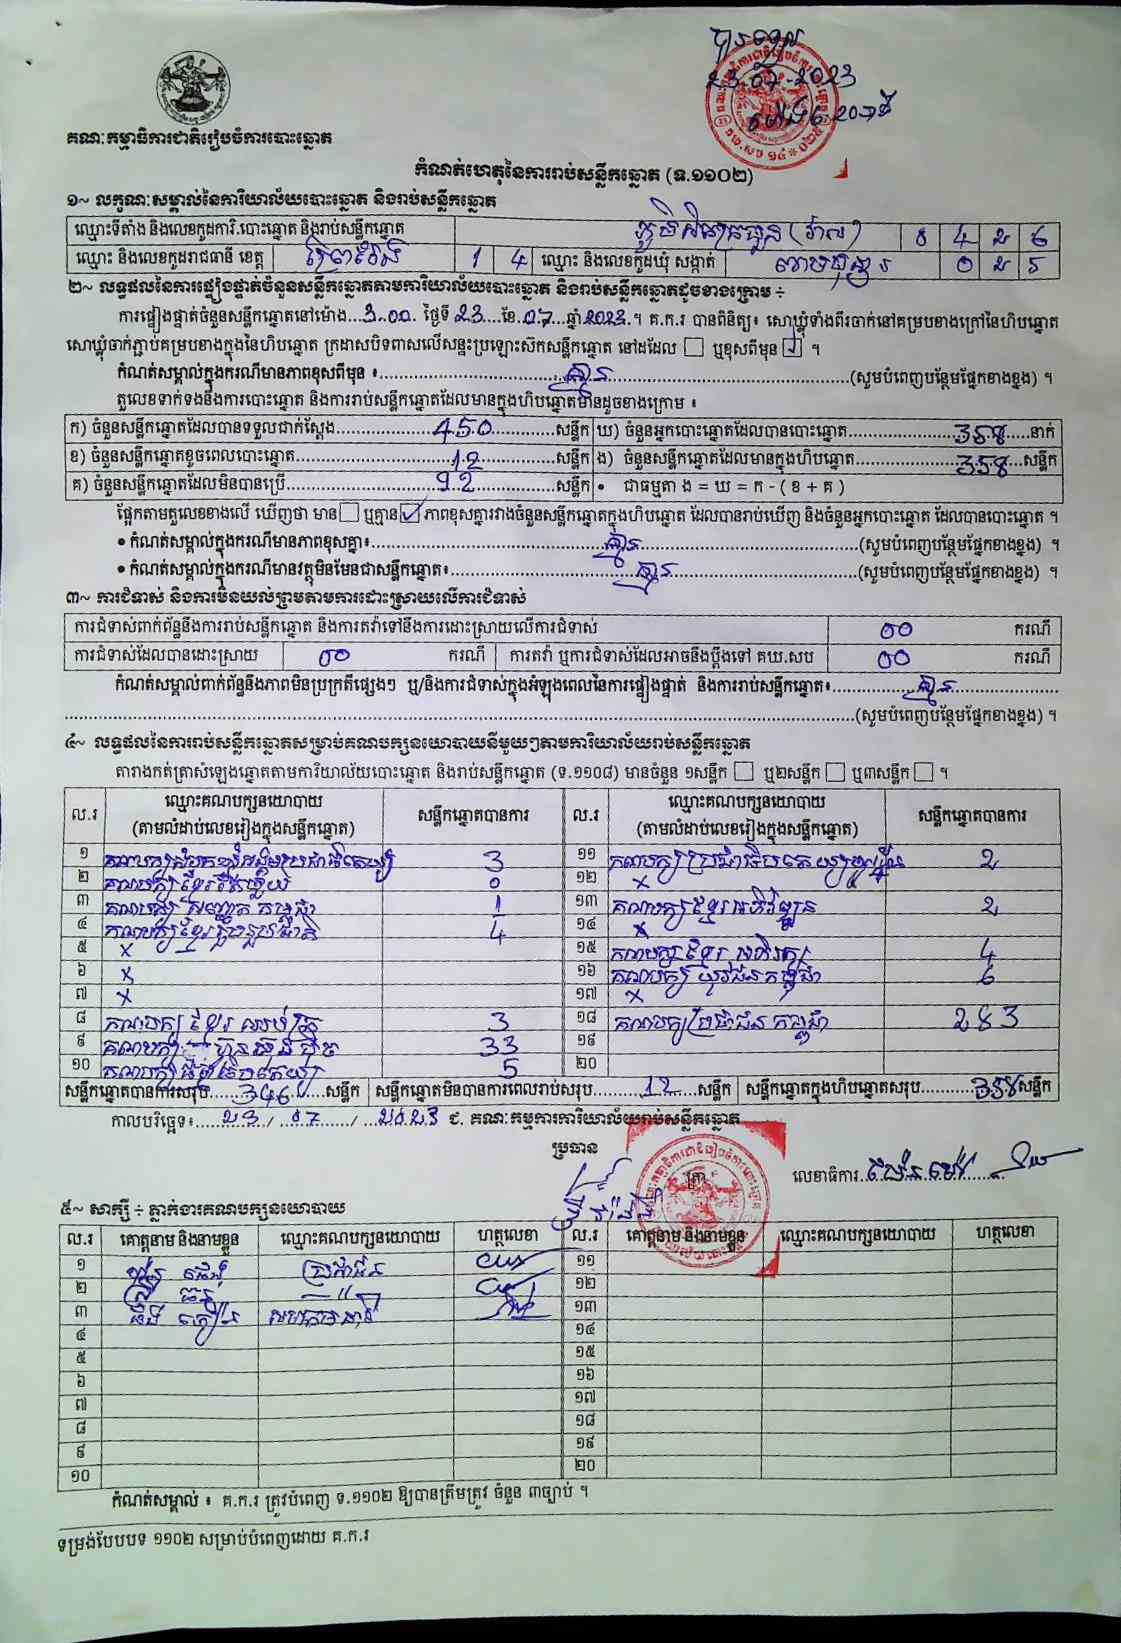 23.07.2023
គណៈកម្មាធិការជាតិរៀបចំការបោះឆ្នោត
កំណត់ហេតុនៃការរាប់សន្លឹកឆ្នោត (ទ.១១០២)
១~ លក្ខណៈសម្គាល់នៃការិយាល័យបោះឆ្នោត និងរាប់សន្លឹកឆ្នោត
ឈ្មោះទីតាំង និងលេខកូដការិ.បោះឆ្នោត និងរាប់សន្លឹកឆ្នោត
ឈ្មោះ និងលេខកូដរាជធានី ខេត្ត ព្រៃវែង 1 4 ឈ្មោះ និងលេខកូដឃុំ សង្កាត់
២~ លទ្ធផលនៃការផ្ទៀងផ្ទាត់ចំនួនសន្លឹកឆ្នោតតាមការិយាល័យបោះឆ្នោត និងរាប់សន្លឹកឆ្នោតដូចខាងក្រោម ÷
ការផ្ទៀងផ្ទាត់ចំនួនសន្លឹកឆ្នោតនៅម៉ោង...3.00. ថ្ងៃទី 23....ខែ.07...ឆ្នាំ 2023.។ គ.ក.រ បានពិនិត្យ៖ សោឃ្លុំទាំងពីរចាក់នៅគម្របខាងក្រៅនៃហិបឆ្នោត
សោឃ្លុំចាក់ភ្ជាប់គម្របខាងក្នុងនៃហិបឆ្នោត ក្រដាសបិទពាសលើសន្ទះប្រឡោះស៊កសន្លឹកឆ្នោត នៅដដែល ☐ ឬខុសពីមុន ☑ ។
កំណត់សម្គាល់ក្នុងករណីមានភាពខុសពីមុន ៖ គ្មាន (សូមបំពេញបន្ថែមផ្នែកខាងខ្នង) ។
តួលេខទាក់ទងនឹងការបោះឆ្នោត និងការរាប់សន្លឹកឆ្នោតដែលមានក្នុងហិបឆ្នោតមានដូចខាងក្រោម ៖
ក) ចំនួនសន្លឹកឆ្នោតដែលបានទទួលជាក់ស្តែង 450 សន្លឹក ឃ) ចំនួនអ្នកបោះឆ្នោតដែលបានបោះឆ្នោត 358 នាក់
ខ) ចំនួនសន្លឹកឆ្នោតខូចពេលបោះឆ្នោត 12 សន្លឹក ង) ចំនួនសន្លឹកឆ្នោតដែលមានក្នុងហិបឆ្នោត 358 សន្លឹក
គ) ចំនួនសន្លឹកឆ្នោតដែលមិនបានប្រើ 92 សន្លឹក • ជាធម្មតា ង = ឃ = ក - ( ខ + គ )
ផ្អែកតាមតួលេខខាងលើ ឃើញថា មាន ☐ ឬគ្មាន ☑ ភាពខុសគ្នារវាងចំនួនសន្លឹកឆ្នោតក្នុងហិបឆ្នោត ដែលបានរាប់ឃើញ និងចំនួនអ្នកបោះឆ្នោត ដែលបានបោះឆ្នោត ។
• កំណត់សម្គាល់ក្នុងករណីមានភាពខុសគ្នា៖ គ្មាន (សូមបំពេញបន្ថែមផ្នែកខាងខ្នង) ។
• កំណត់សម្គាល់ក្នុងករណីមានវត្ថុមិនមែនជាសន្លឹកឆ្នោត៖ គ្មាន (សូមបំពេញបន្ថែមផ្នែកខាងខ្នង) ។
៣~ ការជំទាស់ និងការមិនយល់ព្រមតាមការដោះស្រាយលើការជំទាស់
ការជំទាស់ពាក់ព័ន្ធនឹងការរាប់សន្លឹកឆ្នោត និងការតវ៉ាទៅនឹងការដោះស្រាយលើការជំទាស់ 00 ករណី
ការជំទាស់ដែលបានដោះស្រាយ 00 ករណី ការតវ៉ា ឬការជំទាស់ដែលអាចនឹងប្តឹងទៅ គឃ.សប 00 ករណី
កំណត់សម្គាល់ពាក់ព័ន្ធនឹងភាពមិនប្រក្រតីផ្សេងៗ ឬ/និងការជំទាស់ក្នុងអំឡុងពេលនៃការផ្ទៀងផ្ទាត់ និងការរាប់សន្លឹកឆ្នោត៖ គ្មាន
(សូមបំពេញបន្ថែមផ្នែកខាងខ្នង) ។
៤~ លទ្ធផលនៃការរាប់សន្លឹកឆ្នោតសម្រាប់គណបក្សនយោបាយនីមួយៗតាមការិយាល័យរាប់សន្លឹកឆ្នោត
តារាងកត់ត្រាសំឡេងឆ្នោតតាមការិយាល័យបោះឆ្នោត និងរាប់សន្លឹកឆ្នោត (ទ.១១០៨) មានចំនួន ១សន្លឹក ☐ ឬ២សន្លឹក ☐ ឬ៣សន្លឹក ☐ ។
ល.រ ឈ្មោះគណបក្សនយោបាយ សន្លឹកឆ្នោតបានការ ល.រ ឈ្មោះគណបក្សនយោបាយ សន្លឹកឆ្នោតបានការ
(តាមលំដាប់លេខរៀងក្នុងសន្លឹកឆ្នោត) (តាមលំដាប់លេខរៀងក្នុងសន្លឹកឆ្នោត)
១ គណបក្សសំបុកឃ្មុំសង្គមប្រជាធិបតេយ្យ 3 ១១ 2
២ 0 ១២ x
៣ គណបក្ស កម្ពុជា 1 ១៣ គណបក្សខ្មែរអភិវឌ្ឍន៍ 2
៤ គណបក្សខ្មែររួបរួមជាតិ 4 ១៤ x
៥ x ១៥ គណបក្ស ខ្មែរ 4
៦ x ១៦ គណបក្ស យុវជនកម្ពុជា 6
៧ x ១៧ x
៨ គណបក្ស ខ្មែរ 3 ១៨ គណបក្សប្រជាជន កម្ពុជា 283
៩ គណបក្ស ហ៊្វុនស៊ិនប៉ិច 33 ១៩
១០ 5 ២០
សន្លឹកឆ្នោតបានការសរុប 346 សន្លឹក សន្លឹកឆ្នោតមិនបានការពេលរាប់សរុប 12 សន្លឹក សន្លឹកឆ្នោតក្នុងហិបឆ្នោតសរុប 358 សន្លឹក
កាលបរិច្ឆេទ៖ 23 / 07 / 2023 ជ. គណៈកម្មការការិយាល័យរាប់សន្លឹកឆ្នោត
ប្រធាន
ត្រា លេខាធិការ
៥~ សាក្សី ÷ ភ្នាក់ងារគណបក្សនយោបាយ
ល.រ គោត្តនាម និងនាមខ្លួន ឈ្មោះគណបក្សនយោបាយ ហត្ថលេខា ល.រ គោត្តនាម និងនាមខ្លួន ឈ្មោះគណបក្សនយោបាយ ហត្ថលេខា
១ ប្រជាជន ១១
២ — " — ១២
៣ ១៣
៤ ១៤
៥ ១៥
៦ ១៦
៧ ១៧
៨ ១៨
៩ ១៩
១០ ២០
កំណត់សម្គាល់ ៖ គ.ក.រ ត្រូវបំពេញ ទ.១១០២ ឱ្យបានត្រឹមត្រូវ ចំនួន ៣ច្បាប់ ។
ទម្រង់បែបបទ ១១០២ សម្រាប់បំពេញដោយ គ.ក.រ